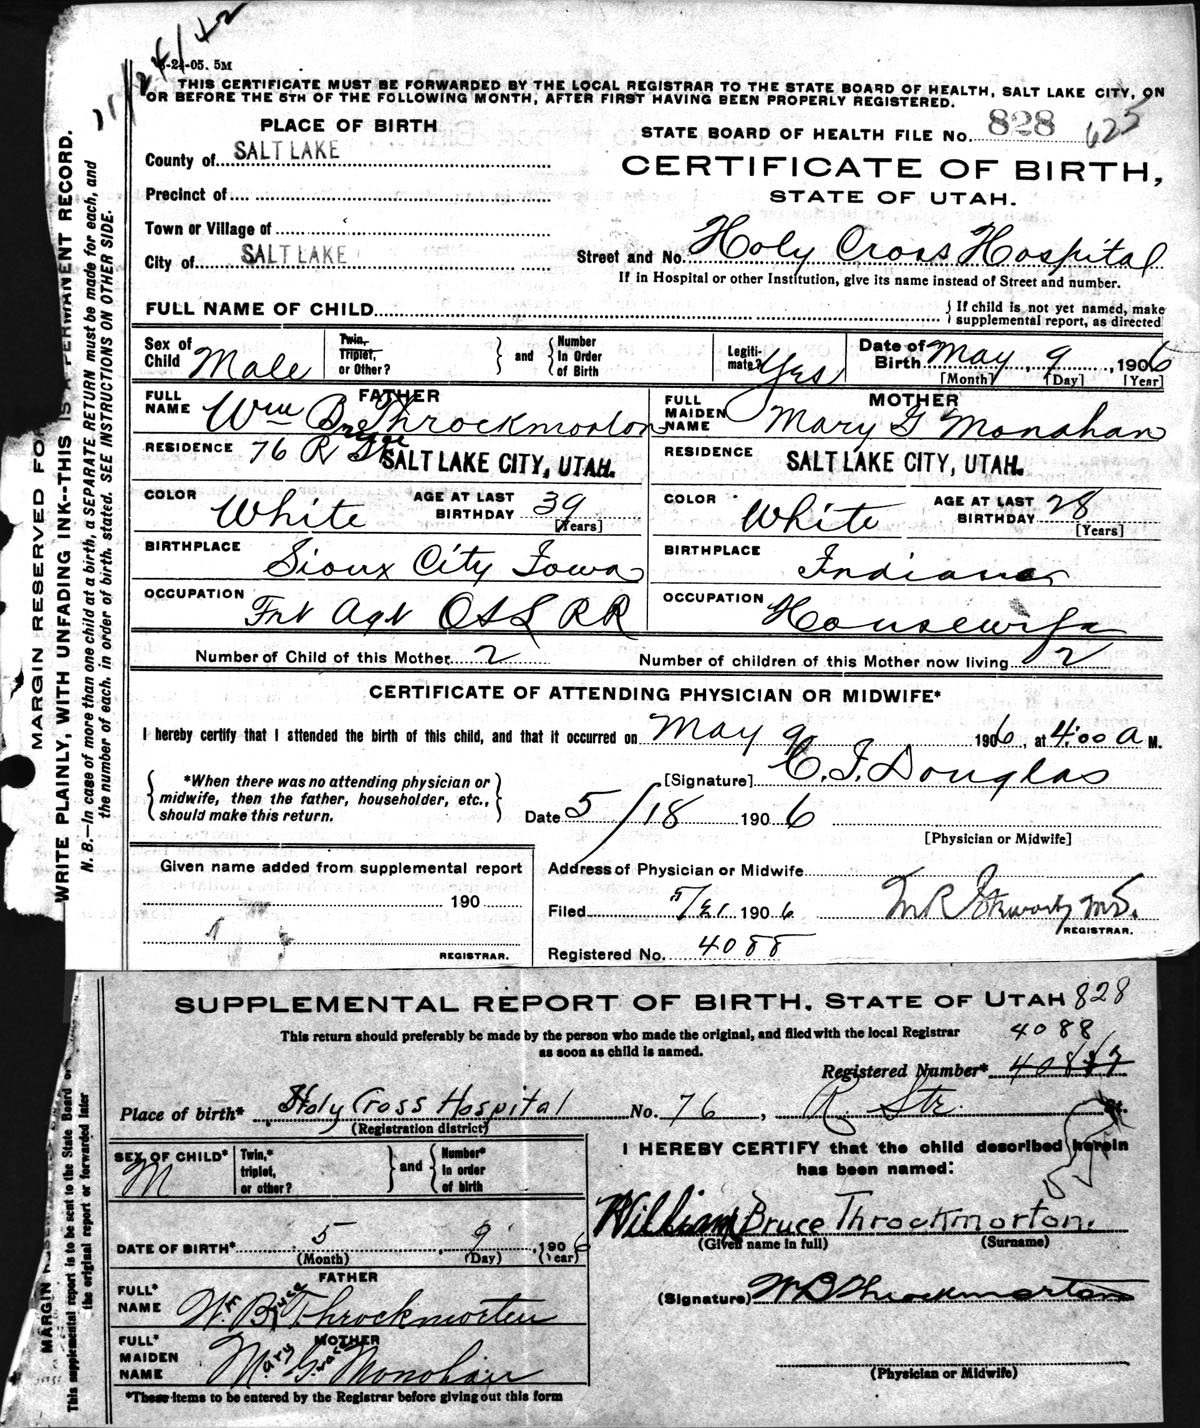 11/24/42
8-24-05. 5M
THIS CERTIFICATE MUST BE FORWARDED BY THE LOCAL REGISTRAR TO THE STATE BOARD OF HEALTH, SALT LAKE CITY, ON
OR BEFORE THE 5TH OF THE FOLLOWING MONTH, AFTER FIRST HAVING BEEN PROPERLY REGISTERED.
PLACE OF BIRTH
STATE BOARD OF HEALTH FILE No. 828 625
County of SALT LAKE
CERTIFICATE OF BIRTH,
STATE OF UTAH.
Precinct of
Town or Village of
City of SALT LAKE
Street and No. Holy Cross Hospital
If in Hospital or other Institution, give its name instead of Street and number.
FULL NAME OF CHILD
If child is not yet named, make
supplemental report, as directed
Sex of Child Male
Twin, Triplet, or Other?
and
Number in Order of Birth
Legitimate? Yes
Date of Birth May 9, 1906
[Month] [Day] [Year]
FATHER
FULL NAME Wm Bruce Throckmorton
MOTHER
FULL MAIDEN NAME Mary G Monahan
RESIDENCE 76 R St SALT LAKE CITY, UTAH.
RESIDENCE SALT LAKE CITY, UTAH.
COLOR White AGE AT LAST BIRTHDAY 39 [Years]
COLOR White AGE AT LAST BIRTHDAY 28 [Years]
BIRTHPLACE Sioux City Iowa
BIRTHPLACE Indiana
OCCUPATION Frt Agt OSL RR
OCCUPATION Housewife
Number of Child of this Mother 2
Number of children of this Mother now living 2
CERTIFICATE OF ATTENDING PHYSICIAN OR MIDWIFE*
I hereby certify that I attended the birth of this child, and that it occurred on May 9 1906, at 4:00 A M.
*When there was no attending physician or
midwife, then the father, householder, etc.,
should make this return.
[Signature] C. F. Douglas
Date 5/18 1906
[Physician or Midwife]
Given name added from supplemental report
190
REGISTRAR.
Address of Physician or Midwife
Filed 5/21 1906
REGISTRAR.
Registered No. 4088
MARGIN RESERVED FO
WRITE PLAINLY, WITH UNFADING INK--THIS IS A PERMANENT RECORD.
N. B.--In case of more than one child at a birth, a SEPARATE RETURN must be made for each, and
the number of each, in order of birth, stated. SEE INSTRUCTIONS ON OTHER SIDE.
SUPPLEMENTAL REPORT OF BIRTH, STATE OF UTAH 828
This return should preferably be made by the person who made the original, and filed with the local Registrar
as soon as child is named.
4088
Registered Number*
Place of birth* Holy Cross Hospital No. 76, R Str. St.
(Registration district)
SEX OF CHILD* M
Twin,* triplet, or other?
and
Number* in order of birth
I HEREBY CERTIFY that the child described herein
has been named:
William Bruce Throckmorton.
(Given name in full) (Surname)
DATE OF BIRTH* 5 9, 1906
(Month) (Day) (Year)
FATHER
FULL* NAME Wm Bruce Throckmorton
(Signature) W B Throckmorton
MOTHER
FULL* MAIDEN NAME Mary Grace Monohan
(Physician or Midwife)
*These items to be entered by the Registrar before giving out this form
MARGIN
This supplemental report is to be sent to the State Board or
the original report or forwarded later